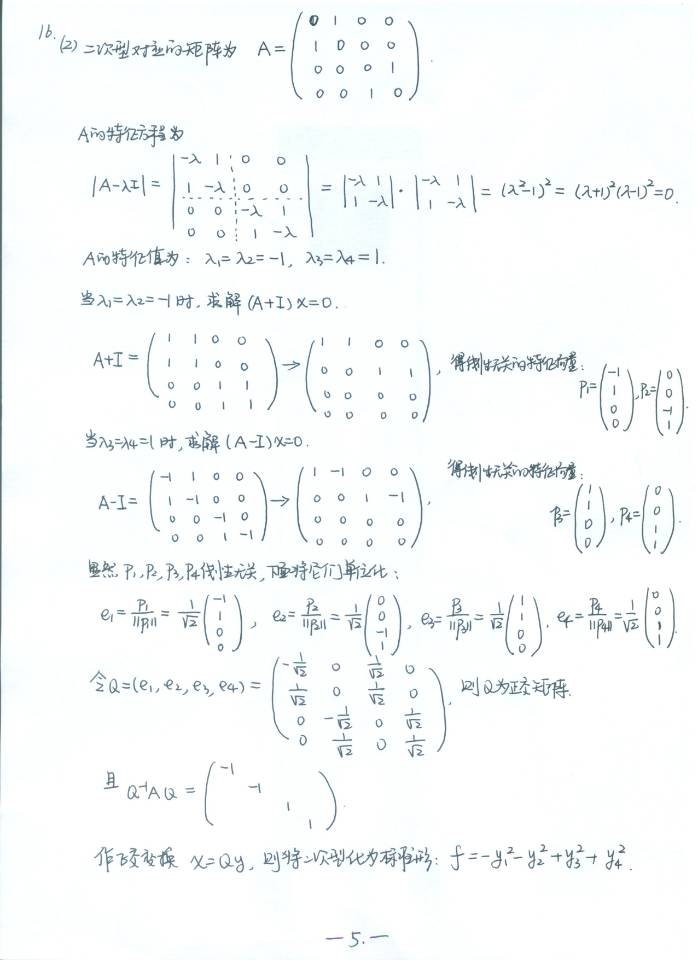 16. (2) 二次型对应的矩阵为 A = ( 0 1 0 0
1 0 0 0
0 0 0 1
0 0 1 0 ).
A的特征方程为
|A-λI| = | -λ 1 0 0
1 -λ 0 0
0 0 -λ 1
0 0 1 -λ | = | -λ 1
1 -λ | · | -λ 1
1 -λ | = (λ²-1)² = (λ+1)²(λ-1)² = 0.
A的特征值为: λ₁=λ₂=-1, λ₃=λ₄=1.
当λ₁=λ₂=-1时, 求解 (A+I)x=0.
A+I = ( 1 1 0 0
1 1 0 0
0 0 1 1
0 0 1 1 ) → ( 1 1 0 0
0 0 1 1
0 0 0 0
0 0 0 0 ), 得线性无关的特征向量:
P₁= ( -1
1
0
0 ), P₂= ( 0
0
-1
1 ).
当λ₃=λ₄=1时, 求解 (A-I)x=0.
A-I = ( -1 1 0 0
1 -1 0 0
0 0 -1 0
0 0 1 -1 ) → ( 1 -1 0 0
0 0 1 -1
0 0 0 0
0 0 0 0 ), 得线性无关的特征向量:
P₃= ( 1
1
0
0 ), P₄= ( 0
0
1
1 ).
显然 P₁, P₂, P₃, P₄线性无关, 下面将它们单位化:
e₁ = P₁/||P₁|| = 1/√2 ( -1
1
0
0 ), e₂ = P₂/||P₂|| = 1/√2 ( 0
0
-1
1 ), e₃ = P₃/||P₃|| = 1/√2 ( 1
1
0
0 ), e₄ = P₄/||P₄|| = 1/√2 ( 0
0
1
1 ).
令Q=(e₁, e₂, e₃, e₄) = ( -1/√2 0 1/√2 0
1/√2 0 1/√2 0
0 -1/√2 0 1/√2
0 1/√2 0 1/√2 ), 则Q为正交矩阵.
且 Q⁻¹AQ = ( -1
-1
1
1 ).
作正交变换 x=Qy, 则将二次型化为标准形: f=-y₁²-y₂²+y₃²+y₄².
—5.—